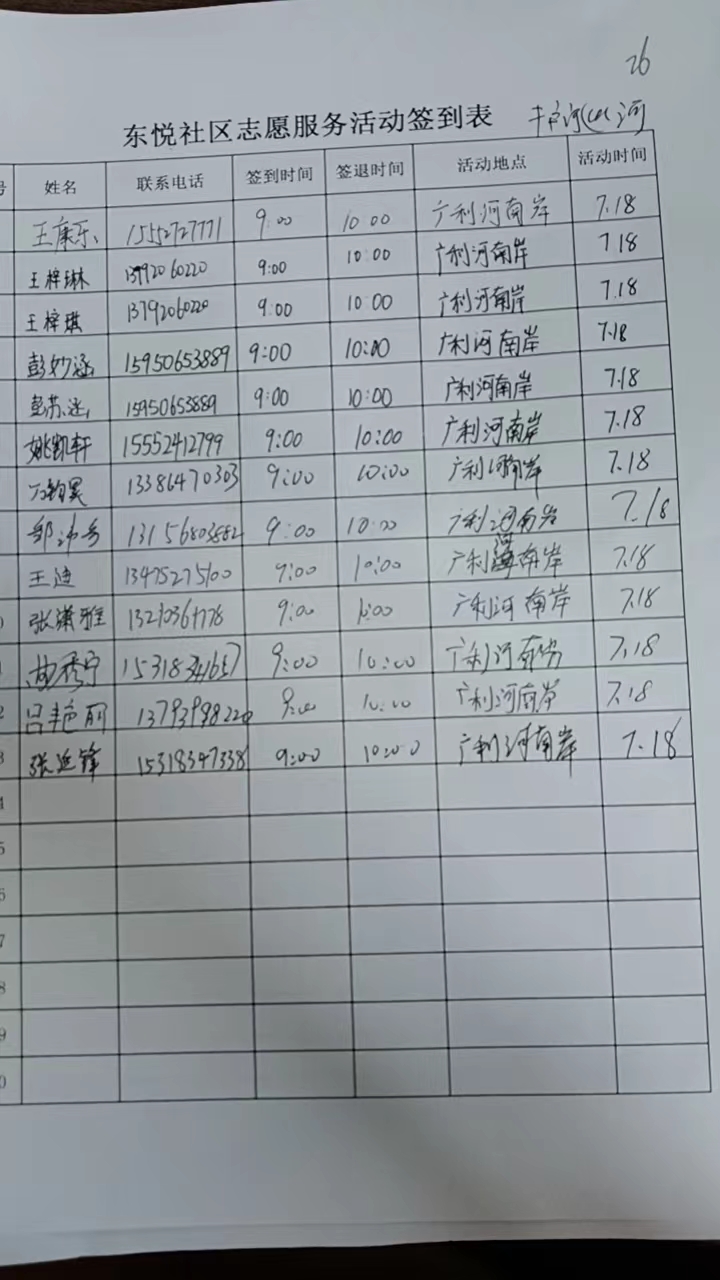 26
东悦社区志愿服务活动签到表 河 河
号 姓名 联系电话 签到时间 签退时间 活动地点 活动时间
王康乐 1552727771 9:00 10:00 广利河南岸 7.18
王梓琳 13792060220 9:00 10:00 广利河南岸 7.18
王梓琪 13792060220 9:00 10:00 广利河南岸 7.18
彭妙涵 15950653889 9:00 10:00 广利河南岸 7.18
彭苏 15950653889 9:00 10:00 广利河南岸 7.18
姚凯轩 15552412799 9:00 10:00 广利河南岸 7.18
13386470303 9:00 10:00 广利河南岸 7.18
邹沛 13156803882 9:00 10:00 广利河南岸 7.18
王迪 13475275100 9:00 10:00 广利河南岸 7.18
0 张潇雅 9:00 广利河南岸 7.18
1 曲秀宁 15318341657 9:00 10:00 广利河南岸 7.18
2 吕艳丽 9:00 10:00 广利河南岸 7.18
3 张延锋 15318347338 9:00 10:00 广利河南岸 7.18
4
5
6
7
8
9
0